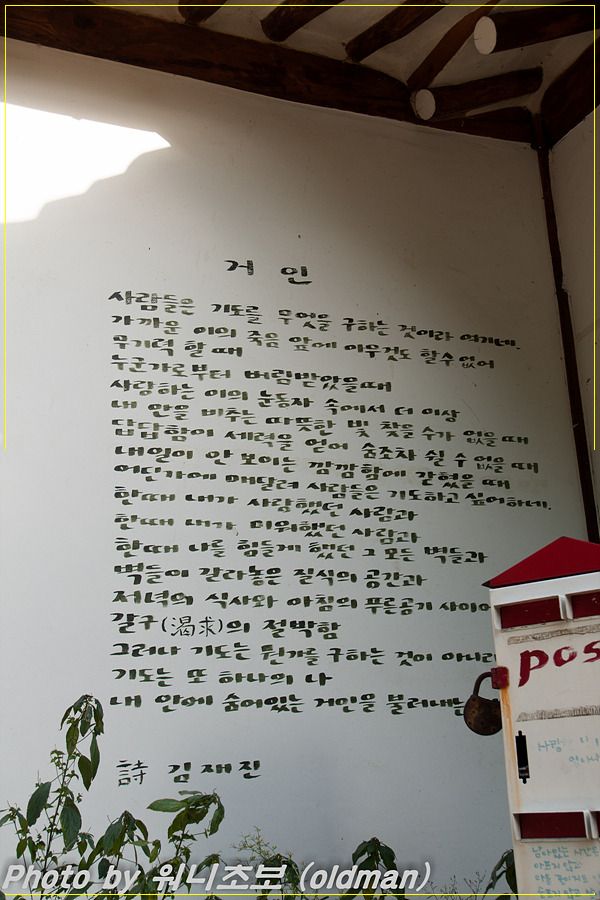 거 인
사람들은 기도를 무엇을 구하는 것이라 여기네.
가까운 이의 죽음 앞에 아무것도 할 수 없어
무기력 할 때
누군가로부터 버림받았을때
사랑하는 이의 눈동자 속에서 더 이상
내 안을 비추는 따뜻한 빛 찾을 수가 없을 때
답답함이 세력을 얻어 숨조차 쉴 수 없을 때
내일이 안 보이는 깜깜함에 갇혔을 때
어딘가에 매달려 사람들은 기도하고 싶어하네.
한때 내가 사랑했던 사람과
한때 내가 미워했던 사람과
한때 나를 힘들게 했던 그 모든 벽들과
벽들이 갈라놓은 질식의 공간과
저녁의 식사와 아침의 푸른곰기 사이에
갈구(渴求)의 절박함
그러나 기도는 뭔가를 구하는 것이 아니라
기도는 또 하나의 나
내 안에 숨어있는 거인을 불러내는
詩 김재진
pos
사랑
남아있는 시간은
Photo by 워니초보 (oldman)